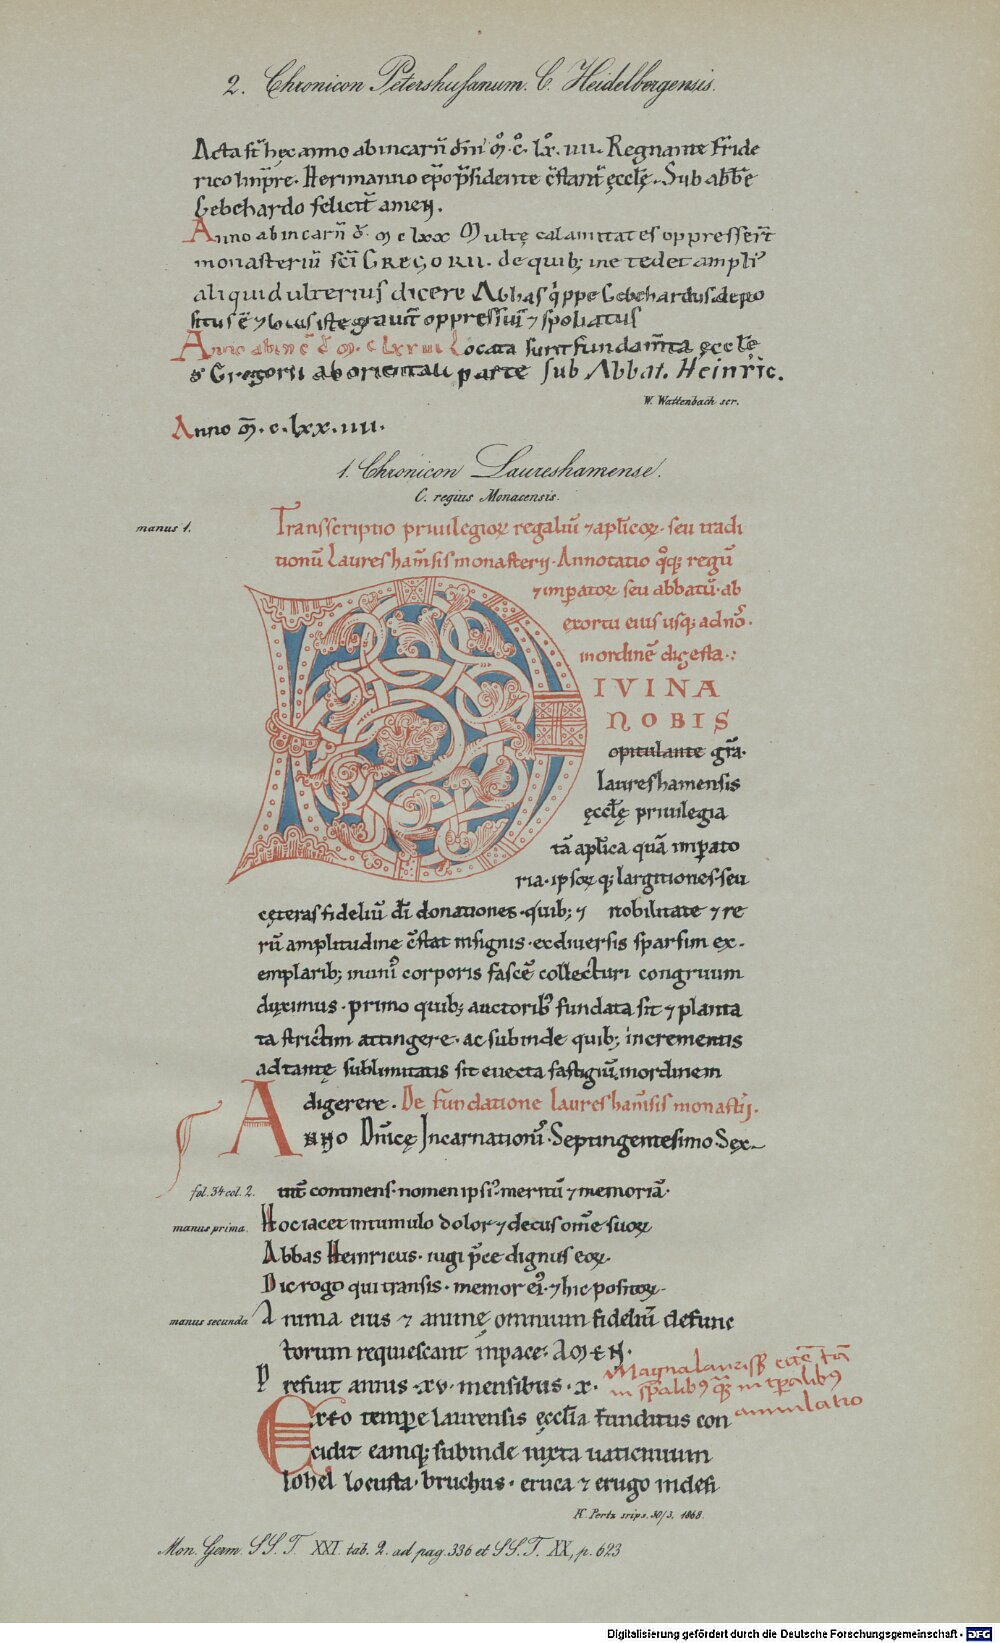 2. Chronicon Petershusanum. C. Heidelbergensis.
Acta st̄ hęc anno ab incarn̄ dn̄i m̊. c̊. lx̊. IIII. Regnante Fride
rico Imp̄re. Herimanno ep̄o p̄sidente c̄stant̄ ęccłę. Sub abb̄e
Gebehardo felicit̄ amen.
Anno ab incarn̄ d̄. m c lxx Multę calamitates oppresser̄t
monasteriū sc̄i GREGORII. de quib; me tedet ampli᾽
aliquid ulterius dicere Abbas q̓ppe Gebehardus depo
situs ē ⁊ locus iste grauit̄ oppressus ⁊ spoliatus
Anno ab inc̄ d̄ m. c lxxiii Locata sunt fundam̄ta ęccłę
s̄ Gregorii ab orientali parte sub Abbat. Heinric.
W. Wattenbach scr.
Anno m̄. c. lxx. IIII.
1. Chronicon Laureshamense.
C. regius Monacensis.
manus 1.
Transscriptio priuilegioꝝ regaliū ⁊ apl̄icoꝝ. seu tradi
tionū Laureshām̄sis monasterij. Annotatio q̊q; regū
⁊ imp̄atoꝝ seu abbatū. ab
exortu eius usq; ad nō.
in ordinē digesta.:
IVINA
NOBIS
opitulante grā.
laureshamensis
ęccłę priuilegia
tā apl̄ica quā imp̄ato
ria. ipsoꝝ q; largitiones seu
cęteras fideliū dī donationes. quib; ⁊ nobilitate ⁊ re
rū amplitudine c̄stat insignis. ex diuersis sparsim ex-
emplarib; in uni᾽ corporis fascē collecturi congruum
duximus. primo quib; auctorib᾽ fundata sit ⁊ planta
ta strictim attingere. ac subinde quib; incrementis
ad tantę sublimitatis sit euecta fastigiū, in ordinem
digerere. De fundatione laureshām̄sis monast̄ij.
Anno Dn̄icę Incarnation᾽. Septingentesimo. Sex-
fol. 34 col. 2.
unt̄ continens. nomen ipsi᾽. meritū ⁊ memoriā.
manus prima.
Hoc iacet in tumulo dolor ⁊ decus om̄e suoꝝ
Abbas Heinricus. iugi p̄ce dignus eoꝝ.
Dic rogo qui transis. memor ei᾽. ⁊ hic positoꝝ.
manus secunda
Anima eius ⁊ animę omnium fideliū defunc
torum requiescant in pace. AMEN.
Prefuit annis .xv. mensibus .x.
Magna laurisß
in sp̄alibus q̄ in tp̄alibus
annilatio
Exto tempe laurensis ęccłia funditus con
cidit eamq; subinde iuxta uaticinium
Iohel locusta. bruchus. eruca ⁊ erugo indesi
K. Pertz srips. 30/3. 1868.
Mon. Germ. SS. T. XXI. tab. 2. ad pag. 336 et SS. T. XX, p. 623
Digitalisierung gefördert durch die Deutsche Forschungsgemeinschaft - DFG